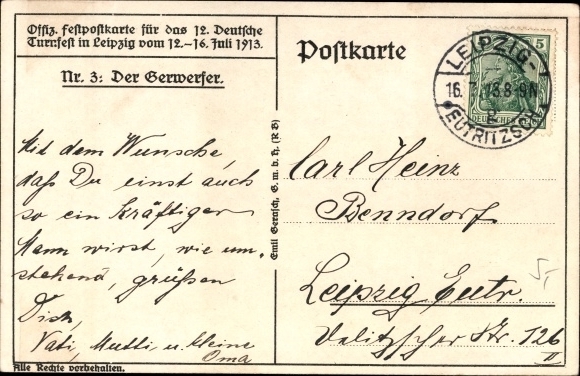 Offiz. Festpostkarte für das 12. Deutsche
Turnfest in Leipzig vom 12.–16. Juli 1913.
Nr. 3: Der Gerwerfer.
Postkarte
LEIPZIG-
16. 7. 13. 8-9N
2
*EUTRITZSCH
5
DEUTSCHES
Mit dem Wunsche,
daß Du einst auch
so ein kräftiger
Mann wirst, wie um-
stehend, grüßen
Dich,
Vati, Mutti u. kleine
Oma
Alle Rechte vorbehalten.
Emil Gerasch, G. m. b. H. (R B)
Carl Heinz
Benndorf
Leipzig Eutr.
Delitzscher Str. 126
II
5,-